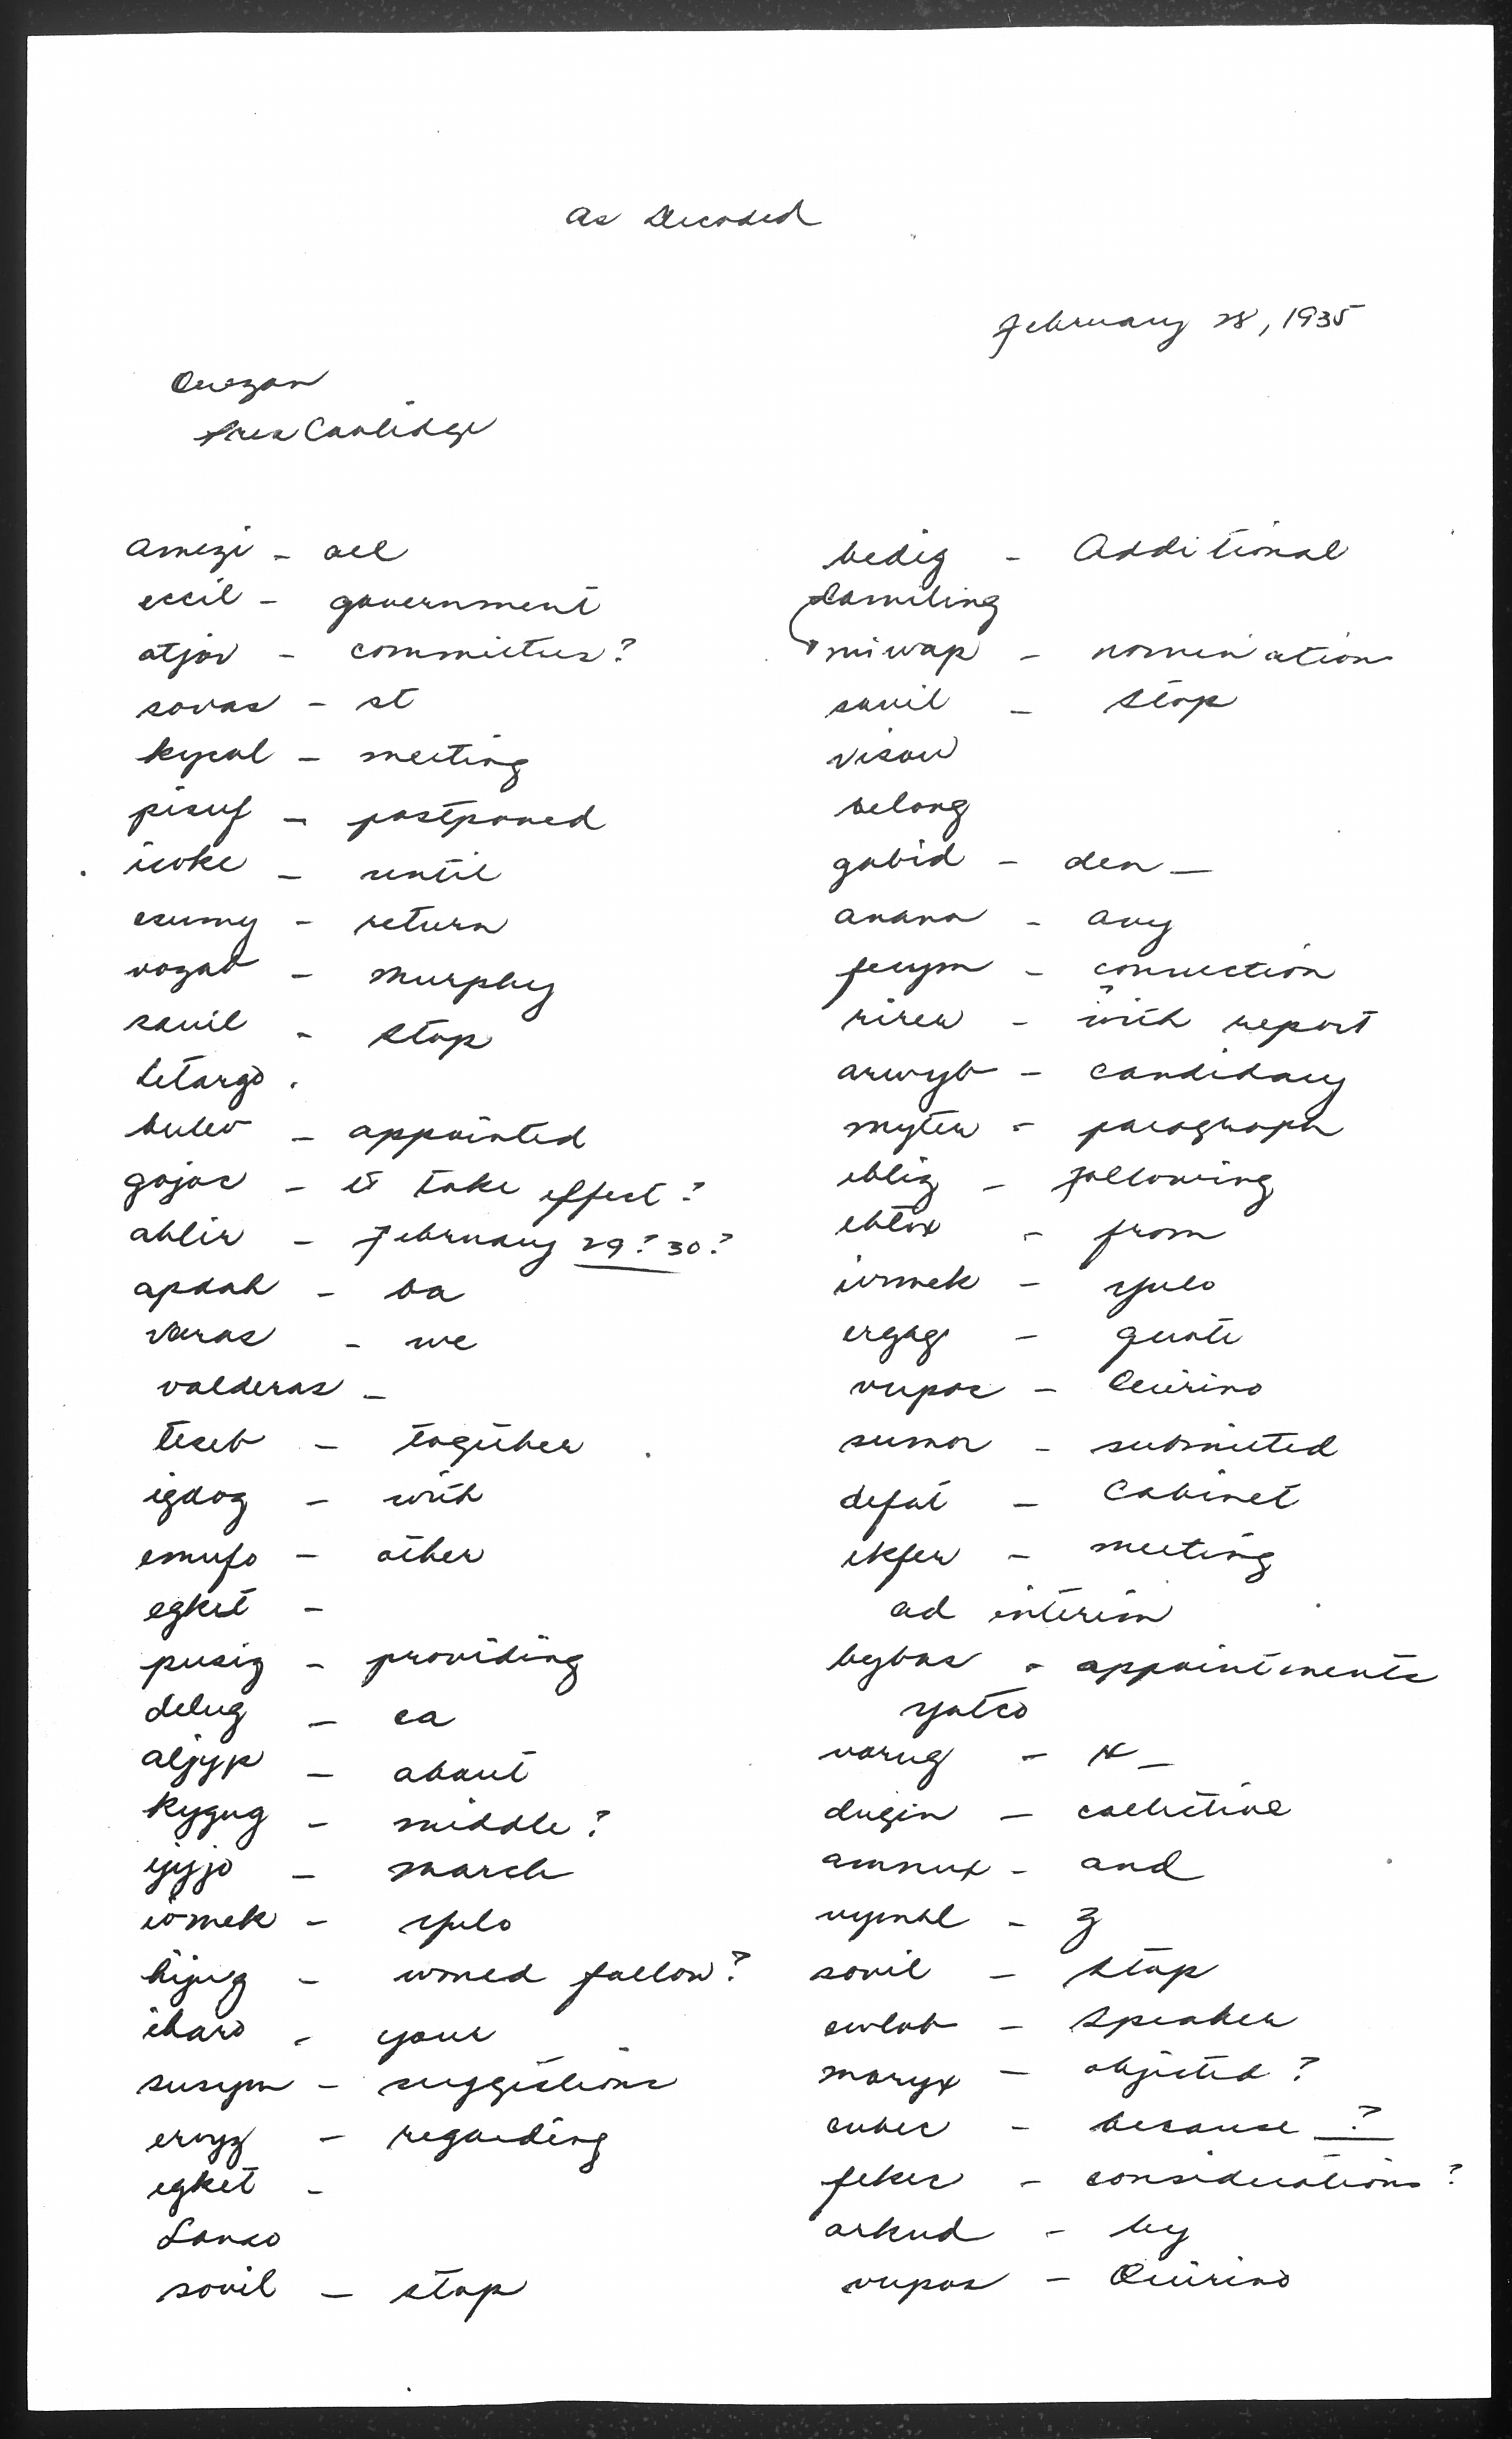 As Decoded
February 28, 1935
Quezon
Pres Coolidge
amezi - all
eccil - government
atjov - committees?
sovas - st
kycol - meeting
pisuf - postponed
icoke - until
esumy - return
vozab - Murphy
sovil - stop
Letargo.
bulev - appointed
gojac - to take effect?
ahlir - February 29? 30?
apdah - ba
varas - we
valderas -
teseb - together
igdog - with
emufo - other
egket -
pusig - providing
delug - ca
aljyp - about
kygug - middle?
ijyjo - March
iomek - Yulo
hijug - would follow?
iharo - your
susym - suggestions
ervyz - regarding
egket -
Lanao
sovil - stop
bedig - Additional
Camiling
miwap - nomination
sovil - stop
visow
belong
gobid - den_
anano - any
fecym - connection
rirew - with report
arwyb - candidacy
mytew - paragraph
eblig - following
ehtox - from
iomek - Yulo
ergag - quote
vupos - Quirino
sumor - submitted
defat - Cabinet
ekfew - meeting
ad interim
bybas - appointments
Yatco
vorug - N_
dugin - collective
amnux - and
vymhl - z
sovil - stop
owlob - Speaker
moryx - objected?
cubec - because ?
fekec - considerations?
arkud - by
vupos - Quirino